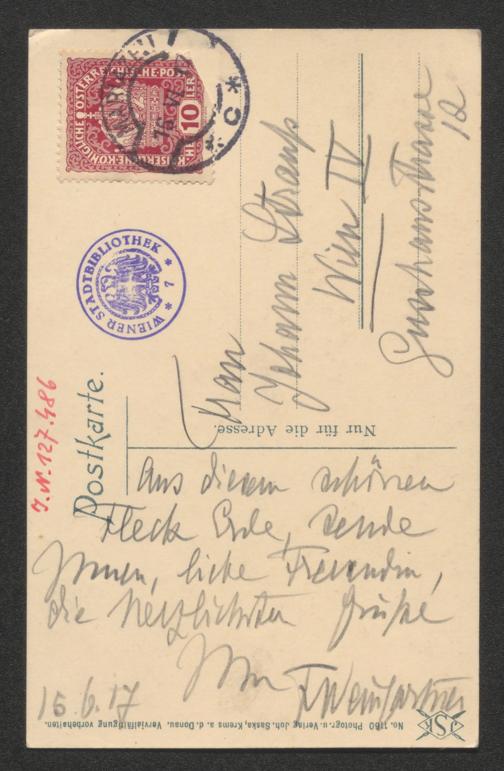 KAISERLICHE KÖNIGLICHE ÖSTERREICHISCHE POST
10
HELLER
15 VI 17
* c *
WIENER STADTBIBLIOTHEK
* 7 *
J.N. 127.486
Postkarte.
Nur für die Adresse.
Frau
Johann Strauß
Wien IV
Gusshausstrasse
12
Aus diesem schönen
Fleck Erde, sende
Ihnen, liebe Freundin,
die herzlichsten Grüße
Ihr
F Weingartner
15.6.17
JSK
No. 1160 Photogr. u. Verlag Joh. Saska, Krems a. d. Donau. Vervielfältigung vorbehalten.